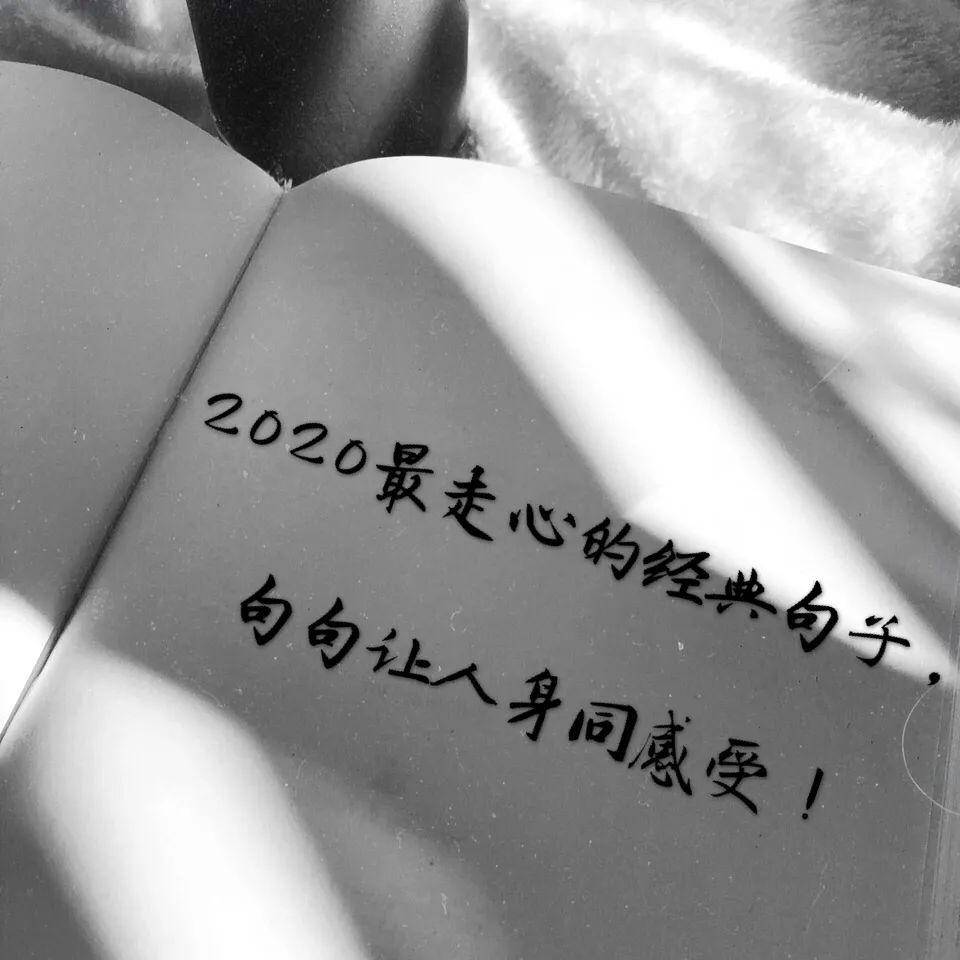 2020最走心的经典句子，
句句让人身同感受！